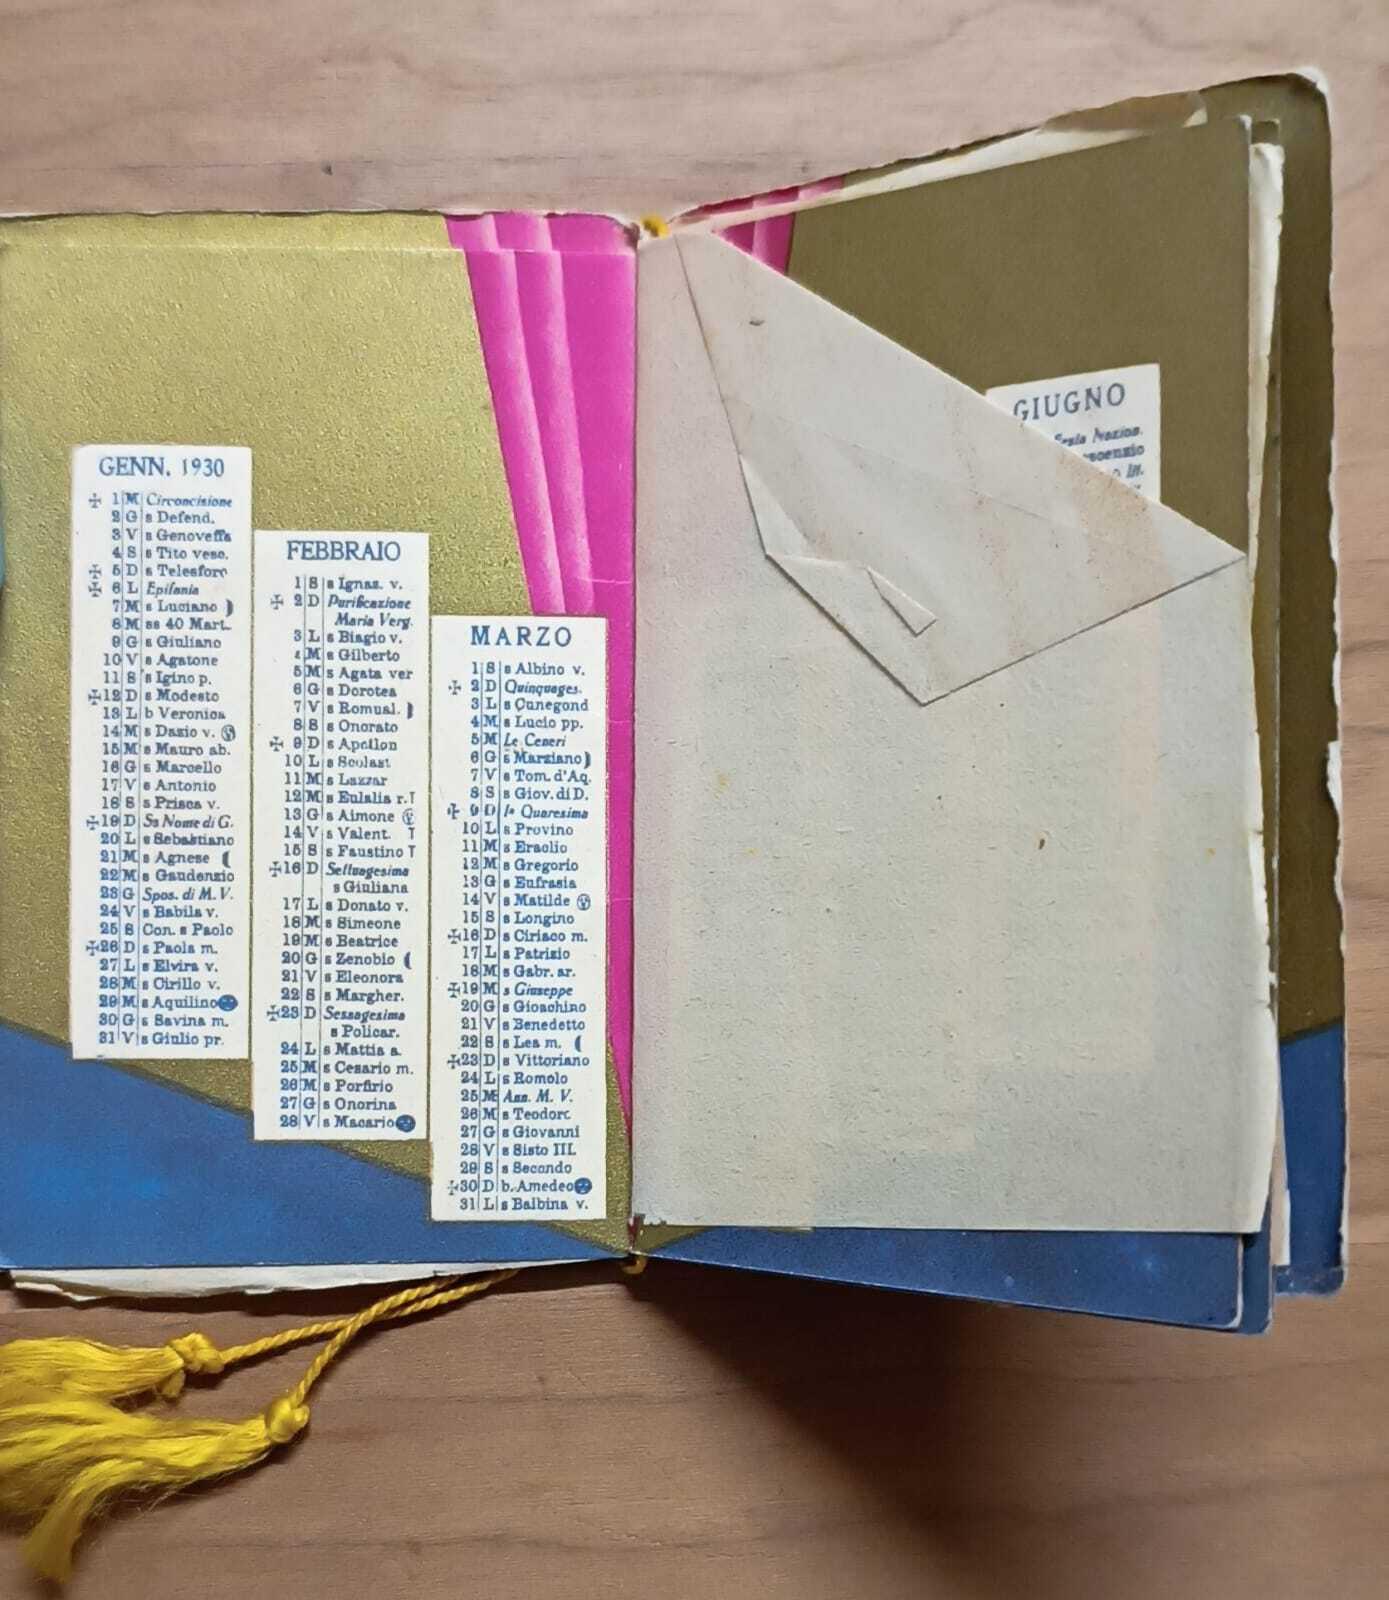 GENN. 1930
✠ 1 M Circoncisione
2 G s Defend.
3 V s Genoveffa
4 S s Tito vesc.
✠ 5 D s Telesforo
✠ 6 L Epifania
7 M s Luciano
8 M ss 40 Mart.
9 G s Giuliano
10 V s Agatone
11 S s Igino p.
✠12 D s Modesto
13 L b Veronica
14 M s Dazio v.
15 M s Mauro ab.
16 G s Marcello
17 V s Antonio
18 S s Prisca v.
✠19 D Ss Nome di G.
20 L s Sebastiano
21 M s Agnese
22 M s Gaudenzio
23 G Spos. di M. V.
24 V s Babila v.
25 S Con. s Paolo
✠26 D s Paola m.
27 L s Elvira v.
28 M s Cirillo v.
29 M s Aquilino
30 G s Savina m.
31 V s Giulio pr.
FEBBRAIO
1 S s Ignaz. v.
✠ 2 D Purificazione
Maria Verg.
3 L s Biagio v.
4 M s Gilberto
5 M s Agata ver
6 G s Dorotea
7 V s Romual.
8 S s Onorato
✠ 9 D s Apollon
10 L s Scolast
11 M s Lazzar
12 M s Eulalia r. T
13 G s Aimone
14 V s Valent. T
15 S s Faustino T
✠16 D Settuagesima
s Giuliana
17 L s Donato v.
18 M s Simeone
19 M s Beatrice
20 G s Zenobio
21 V s Eleonora
22 S s Margher.
✠23 D Sessagesima
s Policar.
24 L s Mattia a.
25 M s Cesario m.
26 M s Porfirio
27 G s Onorina
28 V s Macario
MARZO
1 S s Albino v.
✠ 2 D Quinquages.
3 L s Cunegond
4 M s Lucio pp.
5 M Le Ceneri
6 G s Marziano
7 V s Tom. d'Aq.
8 S s Giov. di D.
✠ 9 D 1a Quaresima
10 L s Provino
11 M s Eraclio
12 M s Gregorio
13 G s Eufrasia
14 V s Matilde
15 S s Longino
✠16 D s Ciriaco m.
17 L s Patrizio
18 M s Gabr. ar.
✠19 M s Giuseppe
20 G s Gioachino
21 V s Benedetto
22 S s Lea m.
✠23 D s Vittoriano
24 L s Romolo
25 M Ann. M. V.
26 M s Teodoro
27 G s Giovanni
28 V s Sisto III.
29 S s Secondo
✠30 D b. Amedeo
31 L s Balbina v.
GIUGNO
Nazion.